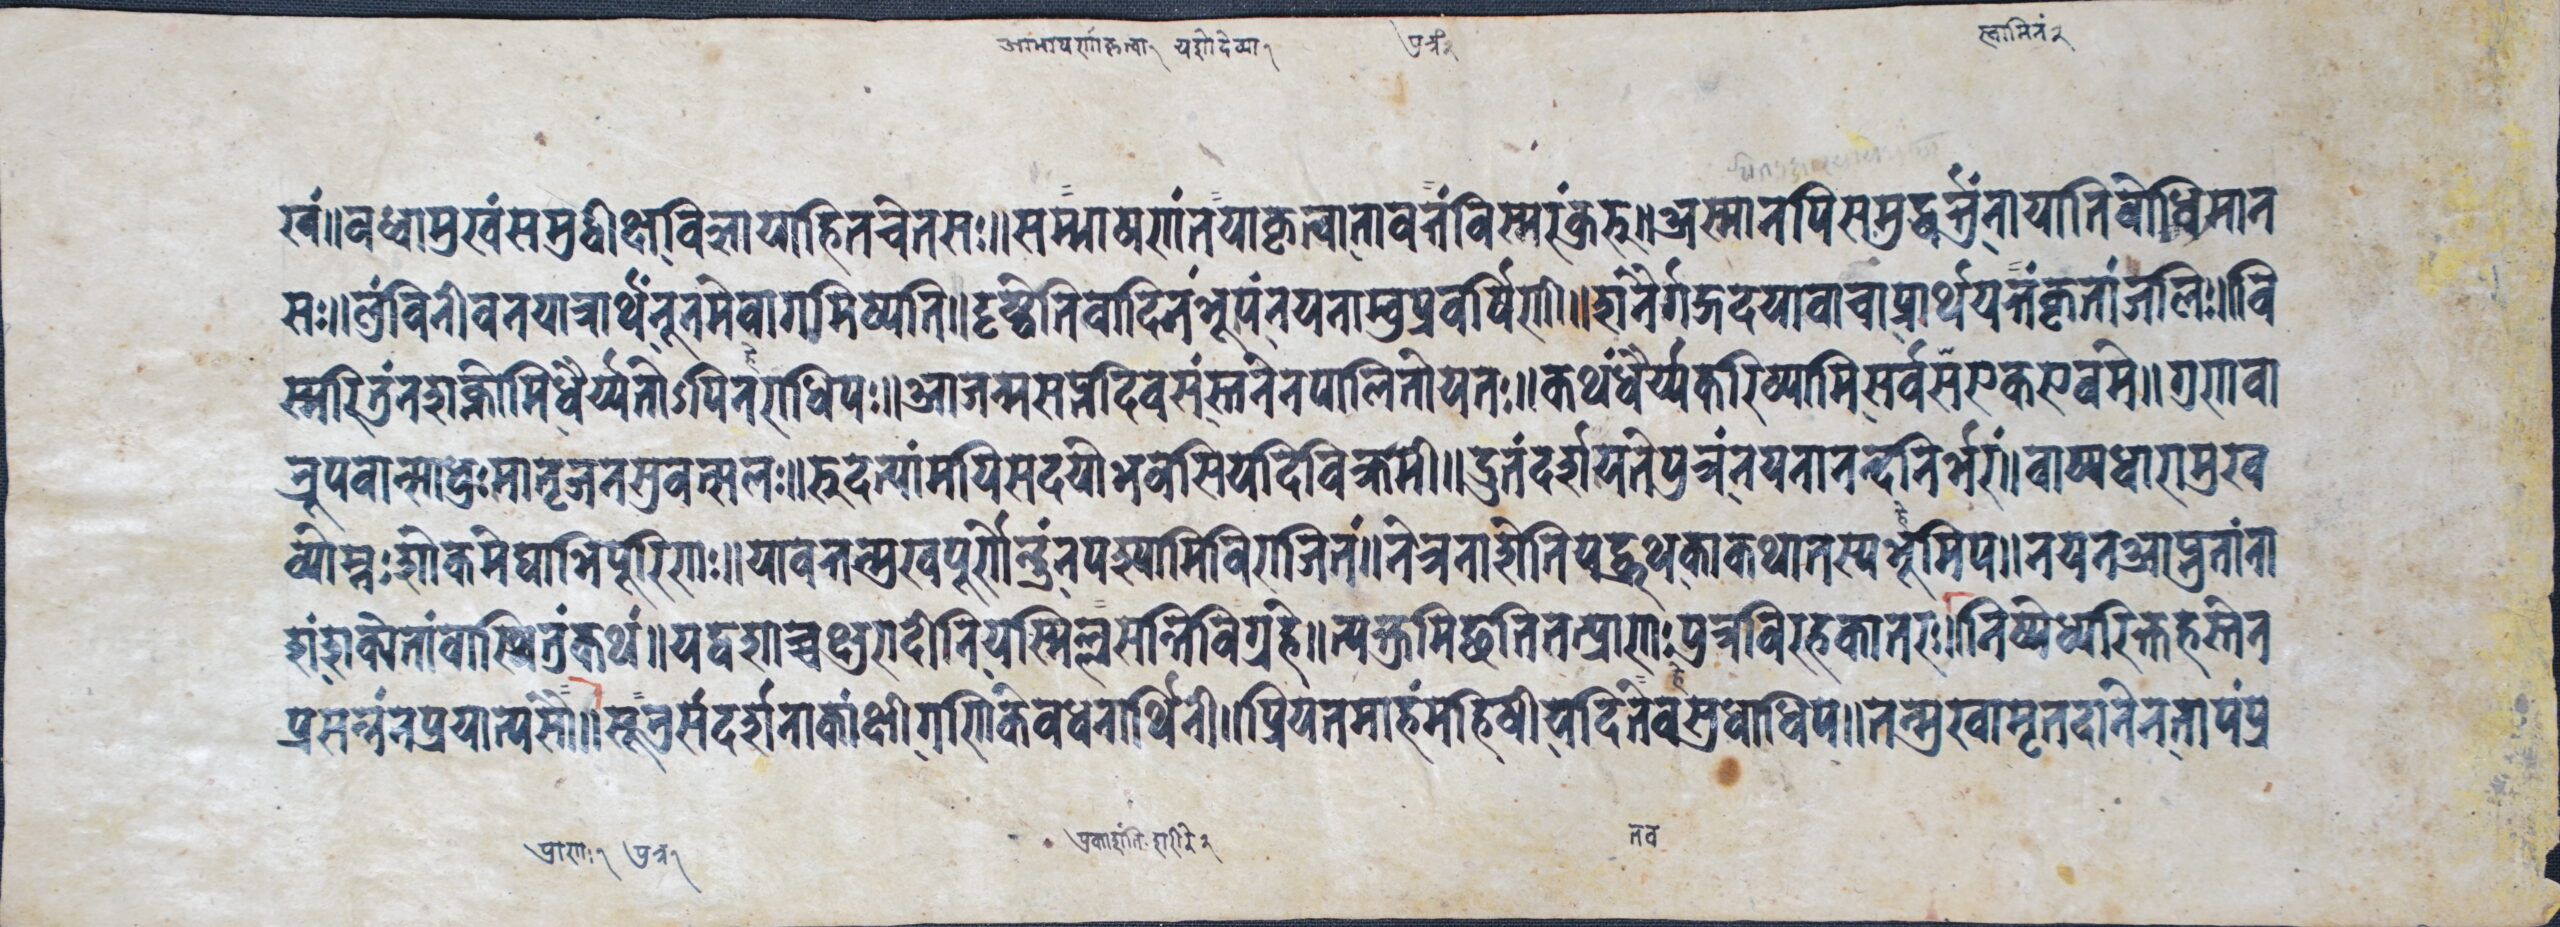 आभाषणंकृत्वा१ यशोदेव्या१ पुत्रं२ स्वामिनं२
खं॥ वध्वामुखंसमुद्वीक्ष्यविज्ञायाहितचेतसः॥ सम्भाषणंतयाकृत्वातावत्तंविस्मरंकुरु॥ अस्मानपिसमुद्धर्त्तुंनायातिबोधिमान
सः॥ लुंविनीवनयात्रार्थंनूनमेवागमिष्यति॥ दृष्ट्वेतिवादिनंभूपंनयनाम्बुप्रवर्षिणी॥ शनैर्गद्गदयावाचाप्रार्थयत्तंकृतांजलिः॥ वि
स्मरितुंनशक्नोमिधैर्य्यतोऽपिनराधिपः॥ आजन्मसप्तदिवसंस्तनेनपालितोयतः॥ कथंधैर्य्यकरिष्यामिसर्वसएकएवमे॥ गुणवा
न्रूपवान्साधुःमातृजनसुवत्सलः॥ रुदत्यांमयिसदयोभवेसियदिविक्रमी॥ द्रुतंदर्शयतेपुत्रंनयनानन्दनिर्भरं॥ वाष्पधारामुख
व्योम्नःशोकमेघाभिपूरिणः॥ यावत्तन्मुखपूर्णेन्दुंनपश्यामिविराजितं॥ नेत्रनाशेतिपट्टथकाकथातस्यभूमिप॥ नयनआप्लुतांना
शंशक्येतांवास्थितुंकथं॥ यद्वशाच्चक्षुरादीनियस्मिल्लसन्तिविग्रहे॥ त्यक्तुमिछतितत्प्राणःपुत्रविरहकातरः॥ निष्पेध्यरिक्तहस्तेन
प्रसन्नंनप्रयात्यसौ॥ सूनुसंदर्शनाकांक्षीगणिकेवधनार्थिनी॥ प्रियतमाहंमहिषीयदितेवसुधाधिप॥ तन्मुखामृतदानेनतापंप्र
प्राणः१ पुत्र१ प्रकाशंति शरीरे२ तव